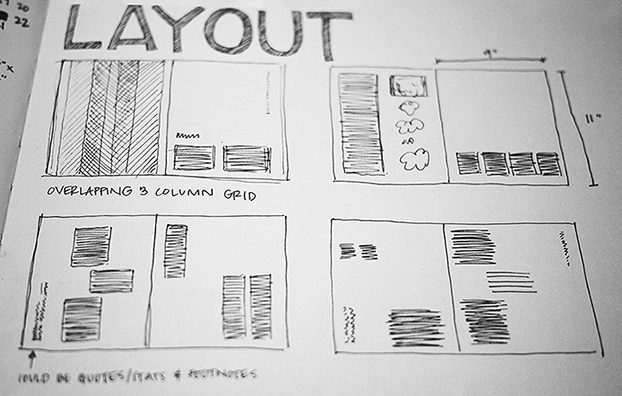 20
22
LAYOUT
9"
11"
OVERLAPPING 3 COLUMN GRID
COULD BE QUOTES/STATS & FOOTNOTES